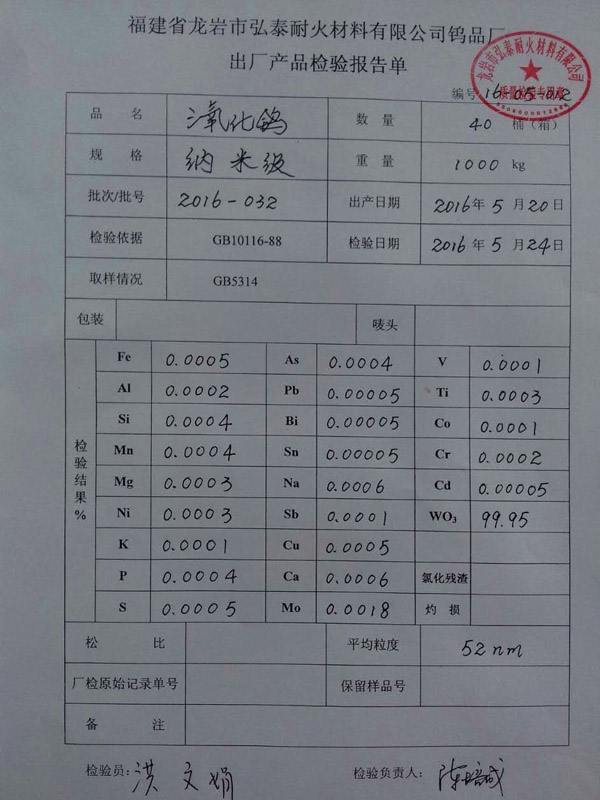 福建省龙岩市弘泰耐火材料有限公司钨品厂
出厂产品检验报告单
编号 16-05-012
品 名 氧化钨 数 量 40 桶（箱）
规 格 纳米级 重 量 1000 kg
批次/批号 2016-032 出产日期 2016年 5 月 20 日
检验依据 GB10116-88 检验日期 2016年 5 月 24日
取样情况 GB5314
包装 唛头
检验结果%
Fe 0.0005 As 0.0004 V 0.0001
Al 0.0002 Pb 0.00005 Ti 0.0003
Si 0.0004 Bi 0.00005 Co 0.0001
Mn 0.0004 Sn 0.00005 Cr 0.0002
Mg 0.0003 Na 0.0006 Cd 0.00005
Ni 0.0003 Sb 0.0001 WO₃ 99.95
K 0.0001 Cu 0.0005
P 0.0004 Ca 0.0006 氯化残渣
S 0.0005 Mo 0.0018 灼 损
松 比 平均粒度 52 nm
厂检原始记录单号 保留样品号
备 注
检验员：洪文娟 检验负责人：陈培成
龙岩市弘泰耐火材料有限公司